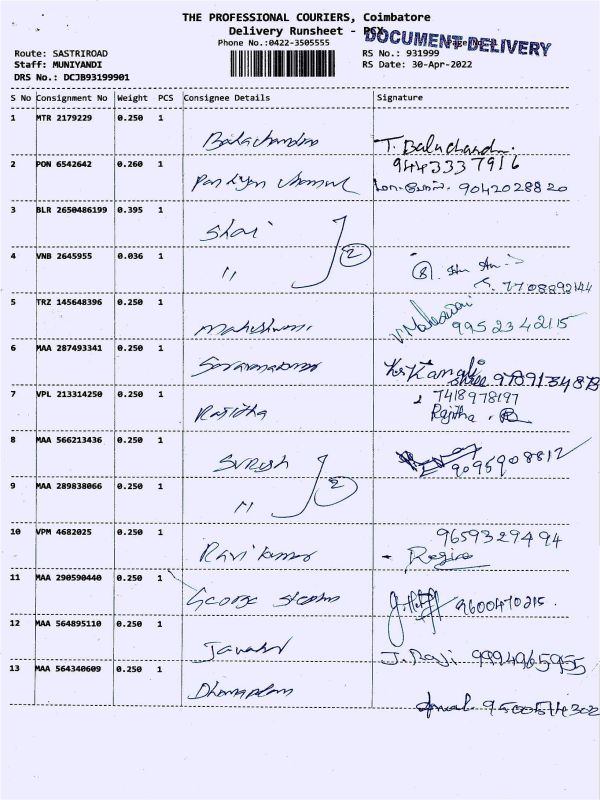 THE PROFESSIONAL COURIERS, Coimbatore
Delivery Runsheet - PCX
DOCUMENT DELIVERY
Phone No.:0422-3505555
Route: SASTRIROAD
RS No.: 931999
Staff: MUNIYANDI
RS Date: 30-Apr-2022
DRS No.: DCJB93199901
S No Consignment No Weight PCS Consignee Details Signature
1 MTR 2179229 0.250 1
Balachandra T. Balachandra.
9443337916
2 PON 6542642 0.260 1
Pandiyan 9042028820
3 BLR 2650486199 0.395 1
Shai
4 VNB 2645955 0.036 1
" 2
7708892144
5 TRZ 145648396 0.250 1
Maheshwari V. Maheswari
9952342115
6 MAA 287493341 0.250 1
Saravanakumar
7 VPL 213314250 0.250 1
7418978197
Rajitha Rajitha
8 MAA 566213436 0.250 1
Suresh 9095908812
9 MAA 289838066 0.250 1
" 2
10 VPM 4682025 0.250 1
9659329494
Ravikumar - Regina
11 MAA 290590440 0.250 1
George Stephen 9600470215.
12 MAA 564895110 0.250 1
Jawahar J. Raji 9994965955
13 MAA 564340609 0.250 1
Dhanapalan
9500574302